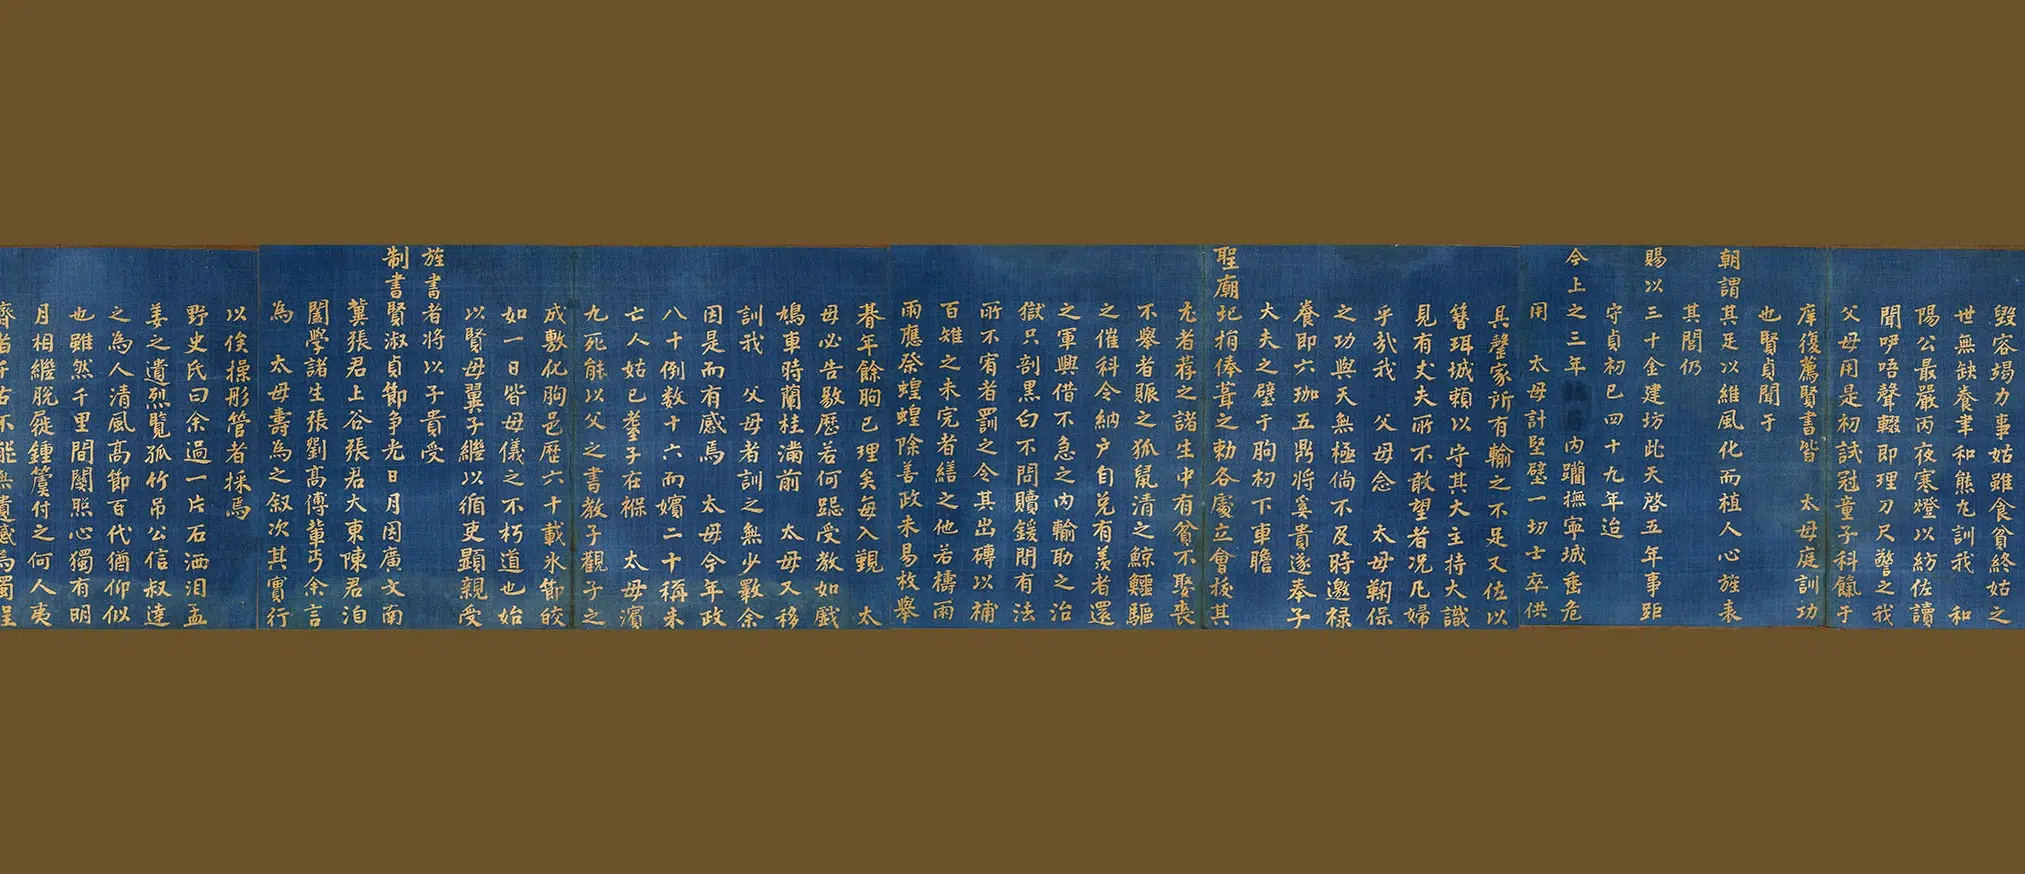 毀容竭力事姑雖食貧終姑之
世無缺養聿和熊丸訓我　和
陽公最嚴丙夜寒燈以紡佐讀
聞咿唔聲輟即理刀尺警之我
父母用是初試冠童子科餼于
庠復薦賢書皆　太母庭訓功
也賢貞聞于
朝謂其足以維風化而植人心旌表
其閭仍
賜以三十金建坊此天啓五年事距
守貞初已四十九年迨
今上之三年　內躪撫寧城垂危
用　太母計堅壁一切士卒供
具罄家所有輸之不足又佐以
簪珥城賴以守其大主持大識
見有丈夫所不敢望者况凡婦
乎哉我　父母念　太母鞠保
之功與天無極倘不及時邀祿
養即六珈五鼎將奚貴遂奉子
大夫之璧于朐初下車瞻
聖廟圮捐俸葺之勅各慶立會後其
尤者荐之諸生中有貧不娶喪
不舉者賑之狐鼠清之鯨鱷驅
之催科令納户自兌有羨者還
之軍興借不急之內輸助之治
獄只剖黑白不問贖鍰間有法
所不宥者罰之令其出磚以補
百雉之未完者繕之他若禱雨
雨應祭蝗蝗除善政未易枚舉
朞年餘朐已理矣每入覲　太
母必告敭歷若何跽受教如戲
鳩車時蘭桂滿前　太母又移
訓我　父母者訓之無少斁余
因是而有感焉　太母今年政
八十例數十六而嬪二十稱未
亡人姑已耋子在褓　太母濱
九死能以父之書教子觀子之
成敷化朐邑歷六十載氷節皎
如一日皆母儀之不朽道也始
以賢母翼子繼以循吏顯親受
旌書者將以子貴受
制書賢淑貞節争光日月因廣文南
冀張君上谷張君大東陳君洎
闔學諸生張劉高傅輩丐余言
為　太母壽為之叙次其實行
以俟操彤管者採焉
野史氏曰余過一片石洒泪孟
姜之遺烈覽孤竹吊公信叔達
之為人清風高節百代猶仰似
也雖然千里間關熙心獨有明
月相繼脫屣鍾簴付之何人夷
齊者于古不能無遺感焉獨呈